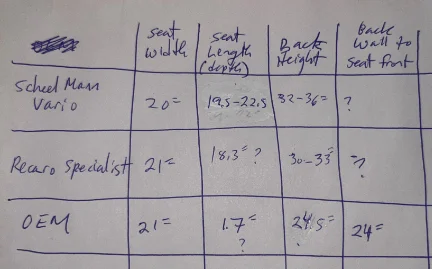 seat width | seat Length (depth) | Back Height | Back Wall to seat front
Scheel Mann Vario | 20" | 19.5-22.5 | 32-36" | ?
Recaro Specialist | 21" | 18.3" ? | 30-33" | ?
OEM | 21" | 1.7" ? | 24.5" | 24"